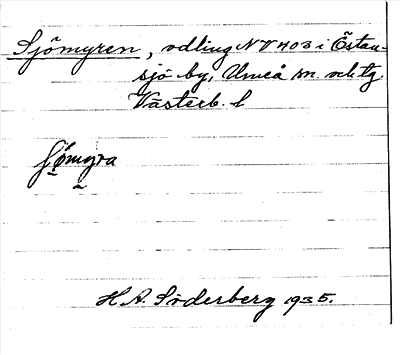 Sjömyren, odling NV 403 i Östan-
sjö by, Umeå sn. och tg.
Västerb. l
Sjömyra
H.A. Söderberg 1935.